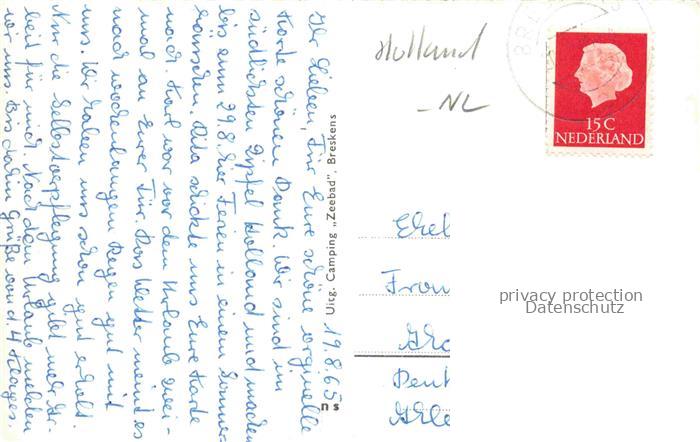 Ihr Lieben, Für Eure schöne originelle
Karte schönen Dank. Wir sind im
südlichsten Zipfel Holland und machen
bis zum 29.8. hier Ferien in einem Sommer-
häuschen. Rita schickte uns Eure Karte
nach. Karl war vor dem Urlaub zwei-
mal an Eurer Tür. Das Wetter meint es
nach wochenlangem Regen gut mit
uns. Wir haben uns schon gut erholt.
Nur die Selbstverpflegung gibt mehr Ar-
beit für mich. Nach dem Urlaub melden
wir uns. Bis dahin Grüße von d. 4
19.8.65
Uitg. Camping „Zeebad”, Breskens
ns
Holland
-NL
15 C
NEDERLAND
privacy protection
Datenschutz